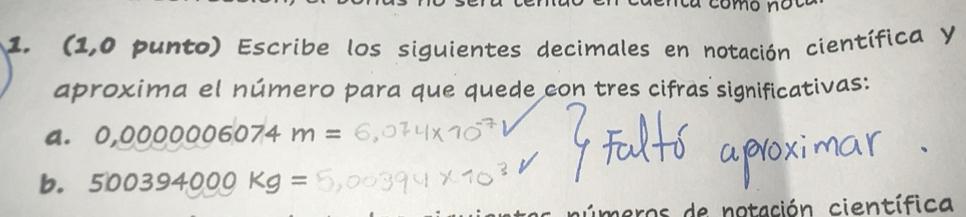 1. (1,0 punto) Escribe los siguientes decimales en notación científica y
aproxima el número para que quede con tres cifras significativas:
a. 0,0000006074 m = 6,074 x 10⁻⁷ ✓
b. 500394000 Kg = 5,00394 x 10³ ✓
} Faltó aproximar.
números de notación científica